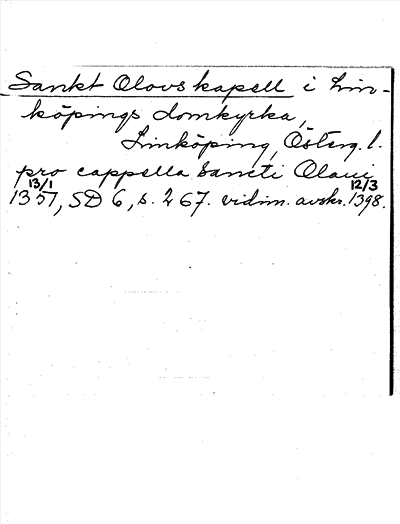 Sankt Olovs kapell i Lin-
köpings domkyrka,
Linköping, Österg. l.
pro cappella sancti Olaui
13/1 12/3
1357, SD 6, s. 267. vidim. avskr. 1398.